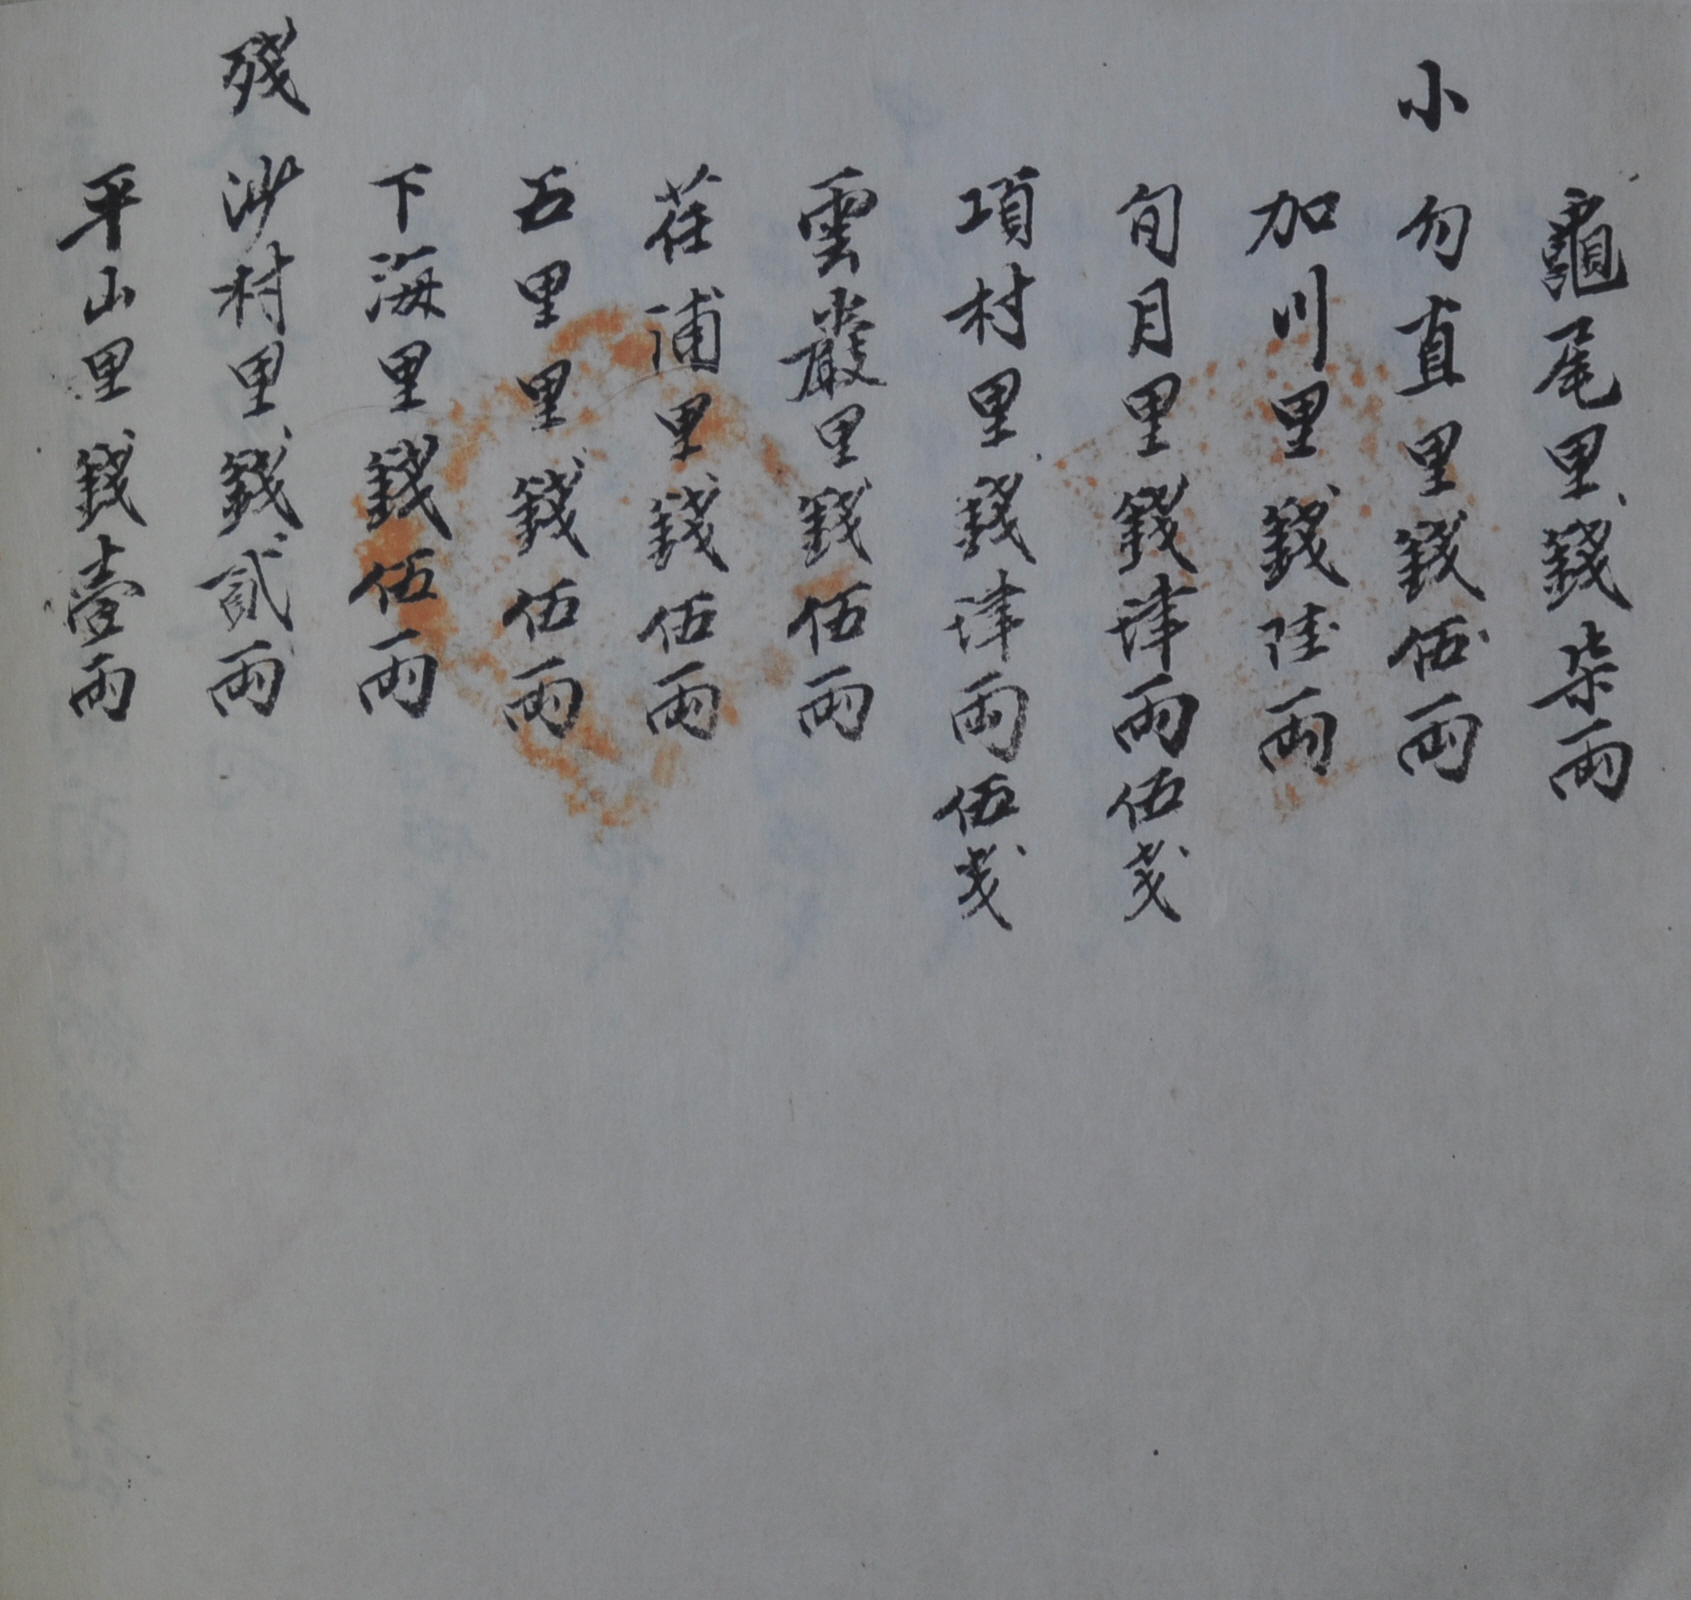 龜尾里錢柒兩
小 勿直里錢伍兩
加川里錢陸兩
旬月里錢肆兩伍戔
項村里錢肆兩伍戔
雲巖里錢伍兩
荏浦里錢伍兩
五里里錢伍兩
下海里錢伍兩
殘 沙村里錢貳兩
平山里錢壹兩